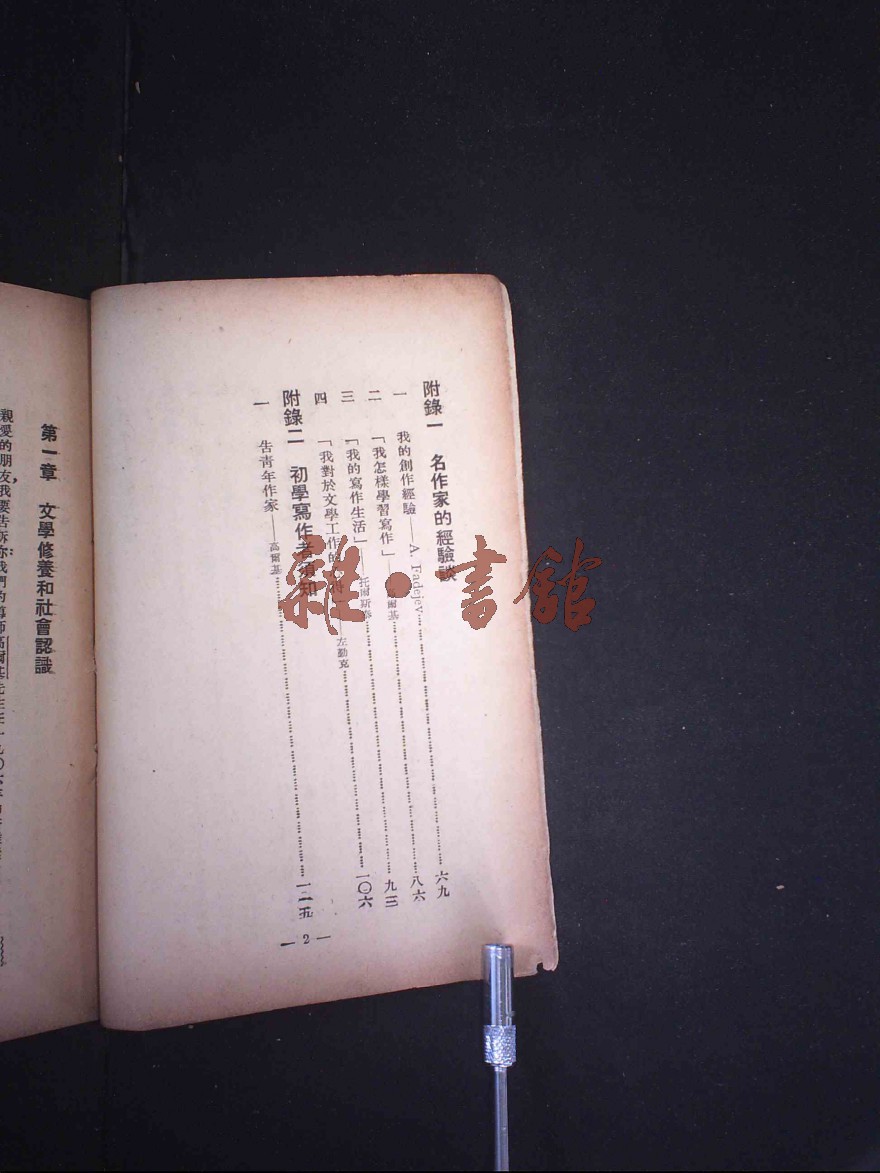 附錄一　名作家的經驗談
一　我的創作經驗——A. Fadejev……六九
二　「我怎樣學習寫作」——高爾基……八六
三　「我的寫作生活」——托爾斯泰……九三
四　「我對於文學工作的——左勤克……一〇六
附錄二　初學寫作者須知
一　告青年作家——高爾基……一二五
— 2 —
第一章　文學修養和社會認識
親愛的朋友，我要告訴你：我們的導師高爾基
雜·書館